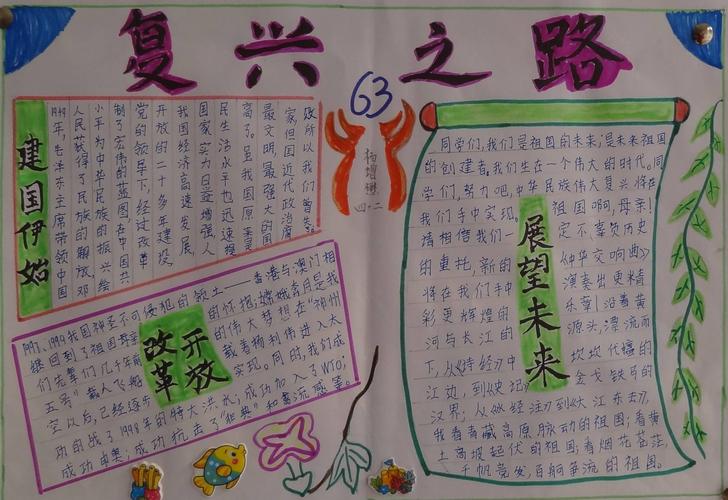 复兴之路
63
杨增琳
四·二
建国伊始
1949年,毛泽东主席带领中国
人民获得了民族的解放,邓
小平为中华民族的振兴绘
制了宏伟的蓝图在中国共
党的领导下,经过改革
开放的二十多年建设,
我国经济高速发展,
国家实力日益增强,人
民生活水平也迅速提
高了。虽我国原来是
最文明,最强大的国
家但因近代政治腐
败所以我们曾失
改革开放
1997、1999我国神圣不可侵犯的领土——香港与澳门相
继回到了祖国母亲的怀抱;嫦娥奔月是我
们先辈们几千年前的伟大梦想在"神州
五号"载人飞船载着杨利伟进入太
空以后,已经逐步实现。同时,我们成
功的战了1998年的特大洪水;成功加入了WTO;
成功申奥;成功抗击了"非典"和禽流感等。
展望未来
同学们,我们是祖国的未来;是未来祖国
的创建者,我们生在一个伟大的时代。同
学们,努力吧,中华民族伟大复兴将在
我们手中实现。祖国啊,母亲!
请相信我们一定不辜负历史
的重托,新的《中华交响曲》
将在我们手中演奏出更精
彩更辉煌的乐章!沿着黄
河与长江的源头,漂流而
下,从《诗经》中坎坎伐檀的
江边,到《史记》金戈铁马的
汉界;从《水经注》到《大江东去》,
我看青藏高原脉动的祖国;看黄
土高坡起伏的祖国;看烟花苍茫,
千帆竞发,百舸争流的祖国。